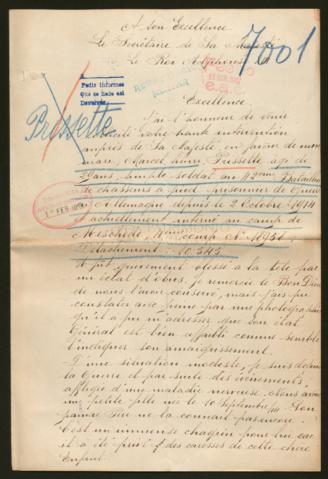 A Son Excellence
Le Secrétaire de Sa Majesté
Le Roi Alphonse
7001
Pedir informes
Que se halle est
Devuelto
Excellence,
Brissette
J'ai l'honneur de venir
votre haute intervention
auprès de Sa Majesté, en faveur de mon
mari, Marcel Henri Brissette, âgé de
ans, simple soldat au 42ème Bataillon
de chasseurs à pied, prisonnier de Guerre
en Allemagne depuis le 2 Octobre 1914
et actuellement interné au camp de
Meschede, camp No 11931
Détachement: 10.343
Il fut grièvement blessé à la tête par
un éclat d'obus, je remercie le Bon Dieu
de nous l'avoir conservé, mais j'ai pu
constater avec peine par une photographie
qu'il a pu m'adresser que son état
Général est bien affaibli comme semble
l'indiquer son amaigrissement.
D'une situation modeste, je suis depuis
la Guerre et par suite des évènements
affligée d'une maladie nerveuse. Nous avons
une petite fille née le 10 Septembre Son
pauvre père ne la connaît pas encore.
C'est un immense chagrin pour lui car
il a été privé des caresses de cette chère
Enfant.